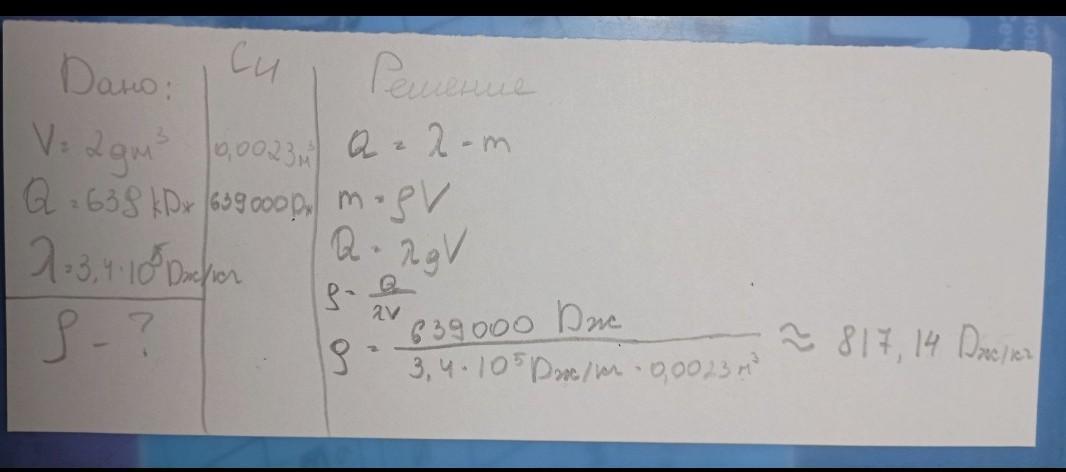 Дано:
V = 2 дм³
Q = 639 кДж
λ = 3,4 · 10⁵ Дж/кг
ρ - ?
Си
0,0023 м³
639000 Дж
Решение
Q = λ - m
m = ρV
Q = λρV
ρ = Q / λV
ρ = 639000 Дж / 3,4 · 10⁵ Дж/кг · 0,0023 м³ ≈ 817,14 Дж/кг